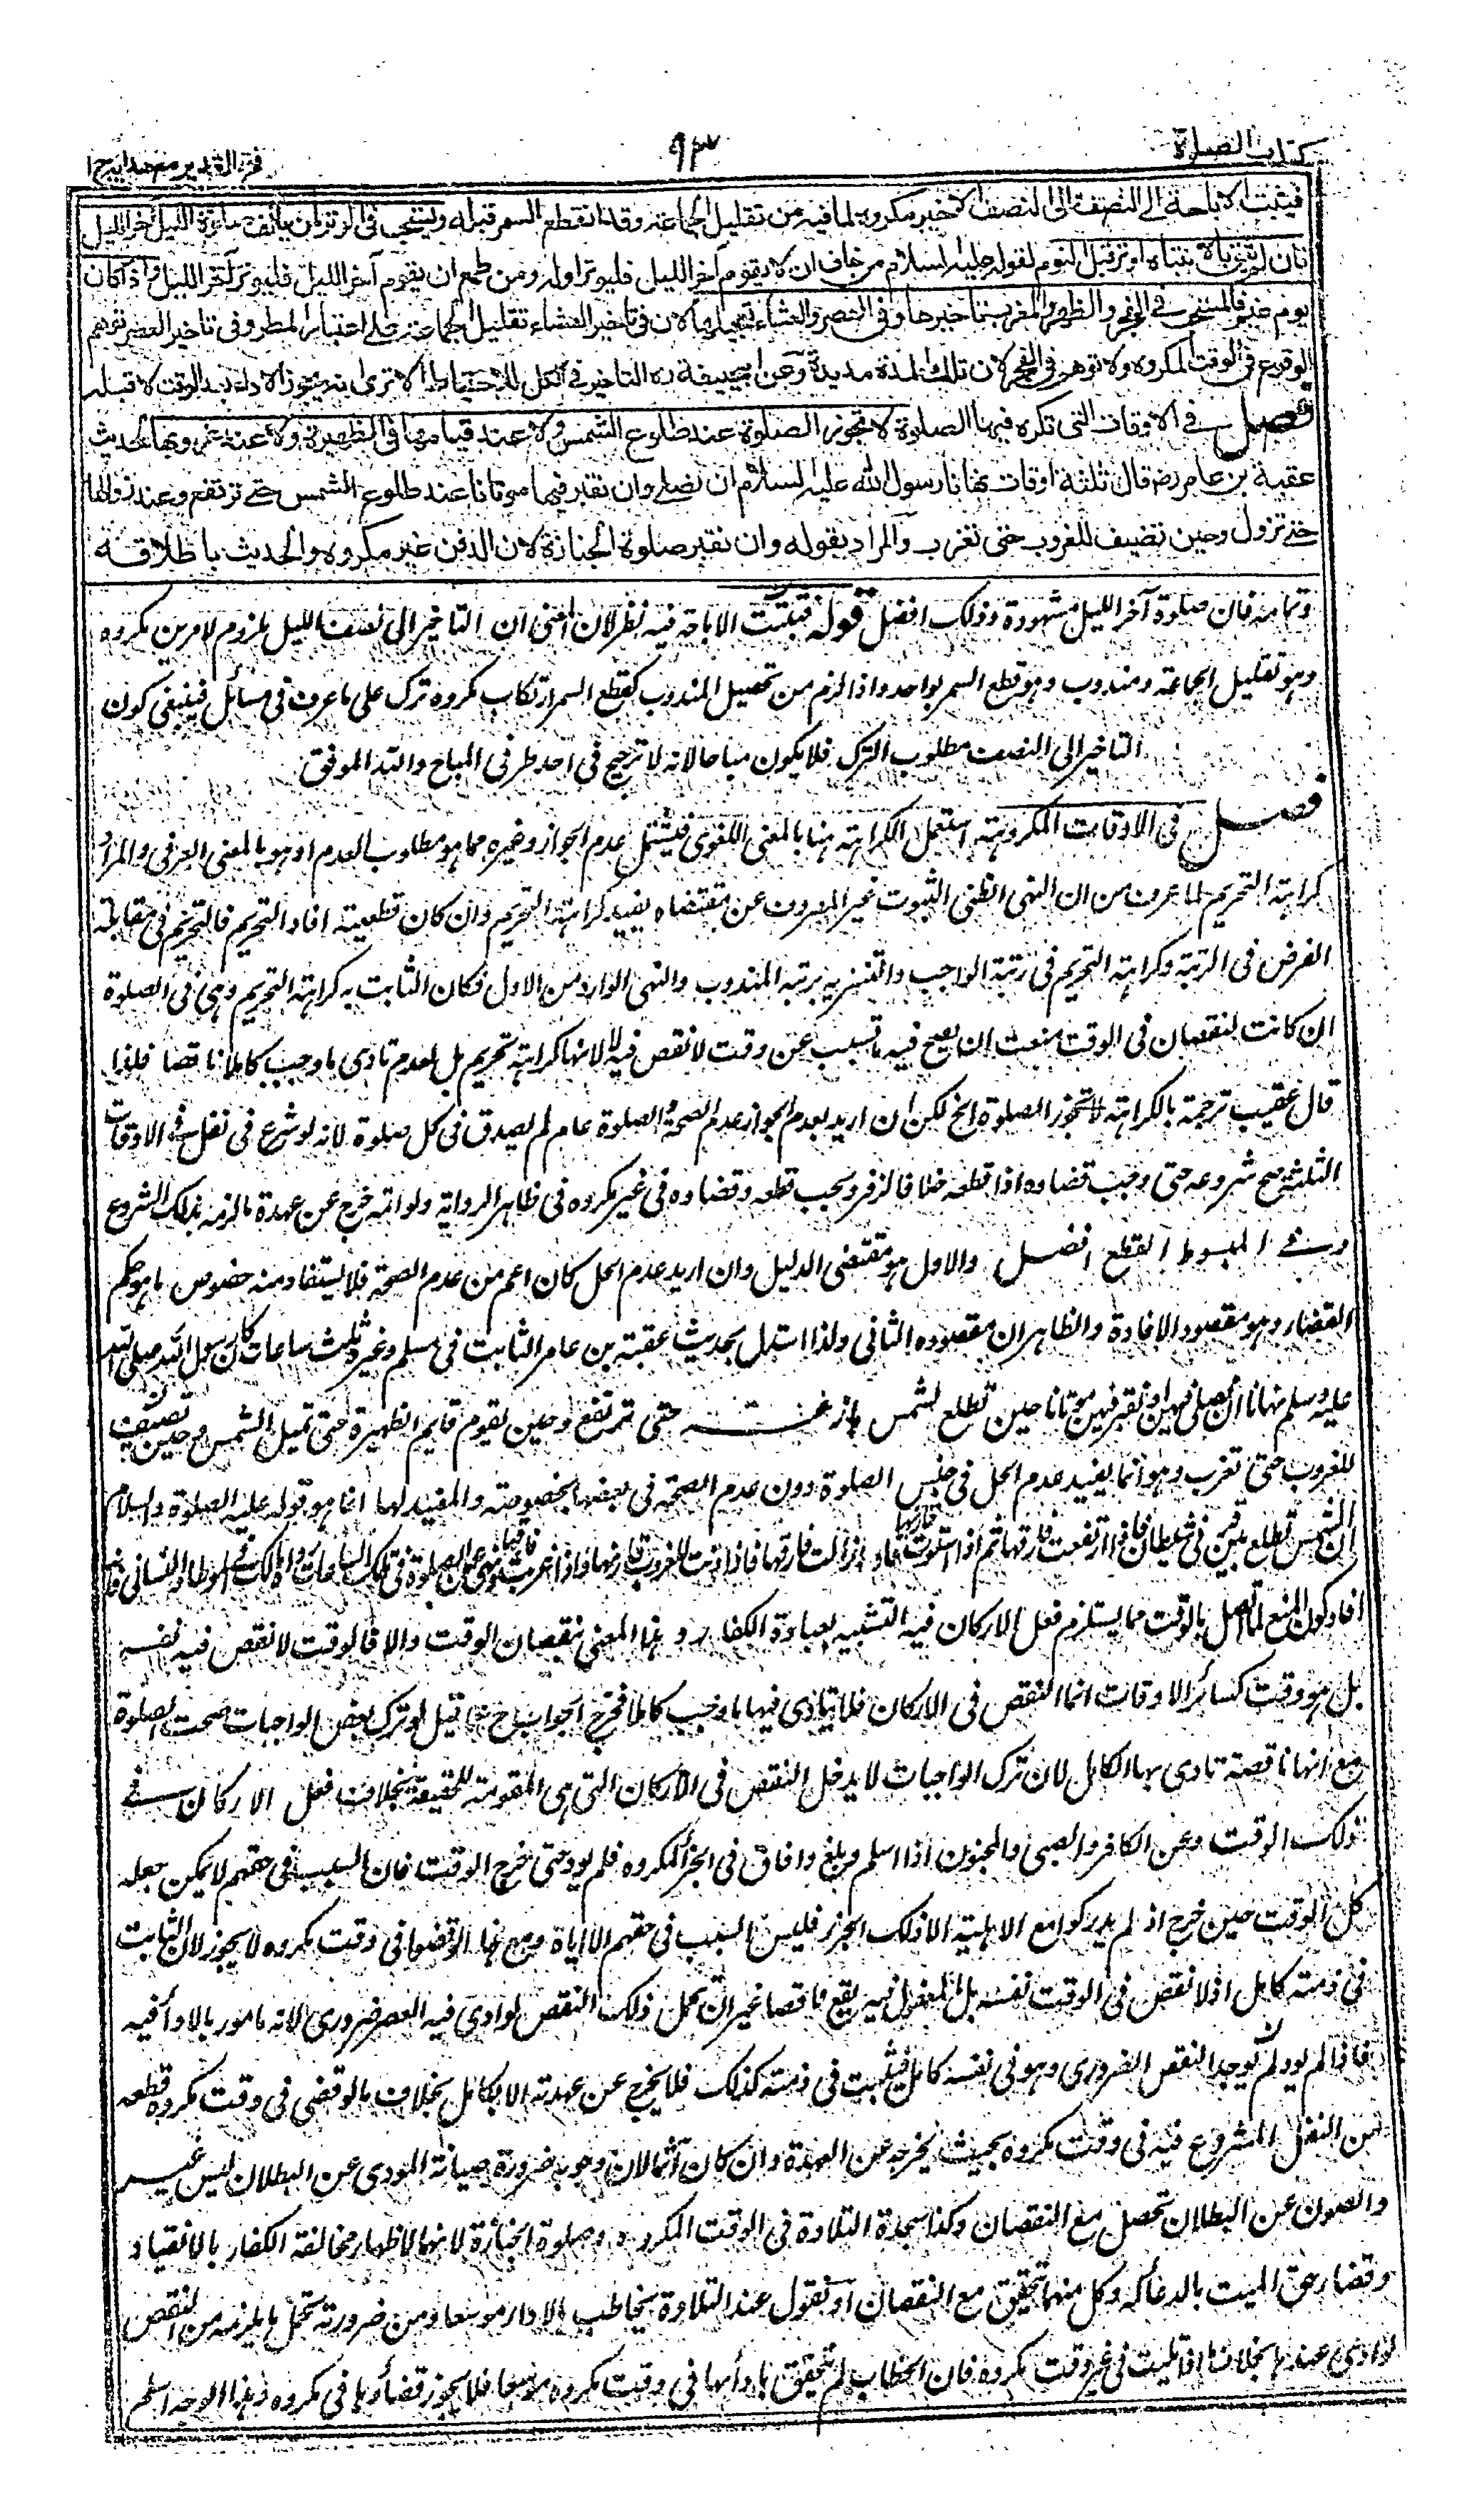 كتاب الصلوة
٩٣
فتح القدير مع هدايه ج ١
فيثبت الاباحة الى النصف والى النصف الاخير مكروه لما فيه من تقليل الجماعة وقد انقطع السمر قبله ويستحب في الوتر لمن يألف صلوة الليل آخر الليل
فان لم يثق بالانتباه اوتر قبل النوم لقوله عليه السلام من خاف ان لا يقوم آخر الليل فليوتر اوله ومن طمع ان يقوم آخر الليل فليوتر آخر الليل واذا كان
يوم غيم فالمستحب في الفجر والظهر والمغرب تاخيرها وفي العصر والعشاء تعجيلهما لان في تاخير العشاء تقليل الجماعة على اعتبار المطر وفي تاخير العصر توهم
الوقوع في الوقت المكروه ولا توهم في الفجر لان تلك المدة مديدة وعن ابيحنيفة ره التاخير في الكل للاحتياط الا ترى انه يجوز الاداء بعد الوقت لا قبله
فصل في الاوقات التى تكره فيها الصلوة لا تجوز الصلوة عند طلوع الشمس ولا عند قيامها في الظهيرة ولا عند غروبها لحديث
عقبة بن عامر رضه قال ثلثة اوقات نهانا رسول الله عليه السلام ان نصلے وان نقبر فيها موتانا عند طلوع الشمس حتے ترتفع وعند زوالها
حتے تزول وحين تضيف للغروب حتى تغرب والمراد بقوله وان نقبر صلوة الجنازة لان الدفن غير مكروه والحديث باطلاقه
وتمامه فان صلوة آخر الليل مشهودة وذلك افضل قوله فيثبت الاباحة فيه نظر لان المعنى ان التاخير الى نصف الليل يلزوم لامرين مكروه
وهو تقليل الجماعة ومندوب وهو قطع السمر بواحد واذا لزم من تحصيل المندوب كقطع السمر ارتكاب مكروه ترك على ما عرف في مسائل فينبغي كون
التاخير الى النصف مطلوب الترك فلا يكون مباحا لانه لا ترجيح في احد طرفي المباح والله الموفق
فصل في الاوقات المكروهة استعمل الكراهة هنا بالمعنى اللغوي فيشمل عدم الجواز وغيره مما هو مطلوب العدم او هو بالمعنى العرفي والمراد
كراهة التحريم لما عرف من ان النهى الظني الثبوت غير المصروف عن مقتضاه يفيد كراهة التحريم وان كان قطعية افاد التحريم فالتحريم في مقابلة
الفرض في الرتبة وكراهة التحريم في رتبة الواجب والتنزيه برتبة المندوب والنهى الوارد من الاول فكان الثابت به كراهة التحريم وهى في الصلوة
ان كانت لنقصان في الوقت منعت ان يصح فيه ما تسبب عن وقت لا نقص فيه لا لانها كراهة تحريم بل لعدم تادى ما وجب كاملا ناقصا فلذا
قال عقيب ترجمة بالكراهة لا تجوز الصلوة الخ لكن ان اريد بعدم الجواز عدم الصحة والصلوة عام لم يصدق في كل صلوة لانه لو شرع في نفل في الاوقات
الثلثة صح شروعه حتى وجب قضاوه اذا قطعه خلافا لزفر ويجب قطعه وقضاوه في غير مكروه في ظاهر الرواية ولو اتمه خرج عن عهدة ما لزمه بذلك الشروع
وفي المبسوط القطع افضل والاول هو مقتضى الدليل وان اريد عدم الحل كان اعم من عدم الصحة فلا يستفاد منه خصوص ما هو حكم
القضاء وهو مقصود الافادة والظاهر ان مقصوده الثاني ولذا استدل بحديث عقبة بن عامر الثابت في مسلم وغيره ثلث ساعات كان رسول الله صلى الله
عليه وسلم نهانا ان نصلى فيهن او نقبر فيهن موتانا حين تطلع الشمس بازغة حتى ترتفع وحين يقوم قايم الظهيرة حتى تميل الشمس وحين تضيف
للغروب حتى تغرب وهو انما يفيد عدم الحل في جنس الصلوة دون عدم الصحة في بعضها بخصوصه والمفيد لها انما هو قوله عليه الصلوة والسلام
ان الشمس تطلع بين قرنى شيطان فاذا ارتفعت فارقها ثم اذا استوت قارنها فاذا زالت فارقها فاذا دنت للغروب قارنها واذا غربت فارقها ونهى عن الصلوة في تلك الساعات رواه مالك في الموطا والنسائى فانه
افاد كون المنع لما اتصل بالوقت مما يستلزم فعل الاركان فيه التشبيه بعبادة الكفار وهذا المعنى بنقصان الوقت والا فالوقت لا نقص فيه نفسه
بل هو وقت كسائر الاوقات انما النقص في الاركان فلا يتادى فيها ما وجب كاملا فخرج الجواب عما قيل لو ترك بعض الواجبات صحت الصلوة
مع انها ناقصة تادى بها الكامل لان ترك الواجبات لا يدخل النقص في الاركان التى هى المقومة للحقيقة بخلاف فعل الاركان في
ذلك الوقت وعن الكافر والصبى والمجنون اذا اسلم وبلغ وافاق في الجزء المكروه فلم يود حتى خرج الوقت فان السبب في حقهم لا يمكن جعله
كل الوقت حين خرج اذ لم يدركوا مع الاهلية الا ذلك الجزء فليس السبب في حقهم الا اياه ومع هذا لو قضوا في وقت مكروه لا يجوز لان الثابت
في ذمته كامل اذ لا نقص في الوقت نفسه بل المفعول فيه يقع ناقصا غير ان تحمل ذلك النقص لو ادى فيه العصر ضرورى لانه مامور بالاداء فيه
فاذا لم يود لم يوجد النقص الضرورى وهو في نفسه كامل فيثبت في ذمته كذلك فلا يخرج عن عهدته الا بكامل بخلاف ما لو قضى في وقت مكروه قطعه
من النفل المشروع فيه في وقت مكروه بحيث يخرجه عن العهدة وان كان آثما لان وجوبه ضرورة صيانة المودى عن البطلان ليس غير
والصون عن البطلان تحصل مع النقصان وكذا سجدة التلاوة في الوقت المكروه وصلوة الجنازة لانها لاظهار مخالفة الكفار بالانقياد
وقضاء حق الميت بالدعاء له وكل منهما تحقق مع النقصان او نقول عند التلاوة يخاطب بالاداء موسعا ومن ضرورته تحمل ما يلزمه من النقص
لو ادى عندها بخلاف ما اذا تليت في غير وقت مكروه فان الخطاب لم يتحقق بادائها في وقت مكروه موسعا فلا يجوز قضاؤها في مكروه وهذا الوجه اسلم